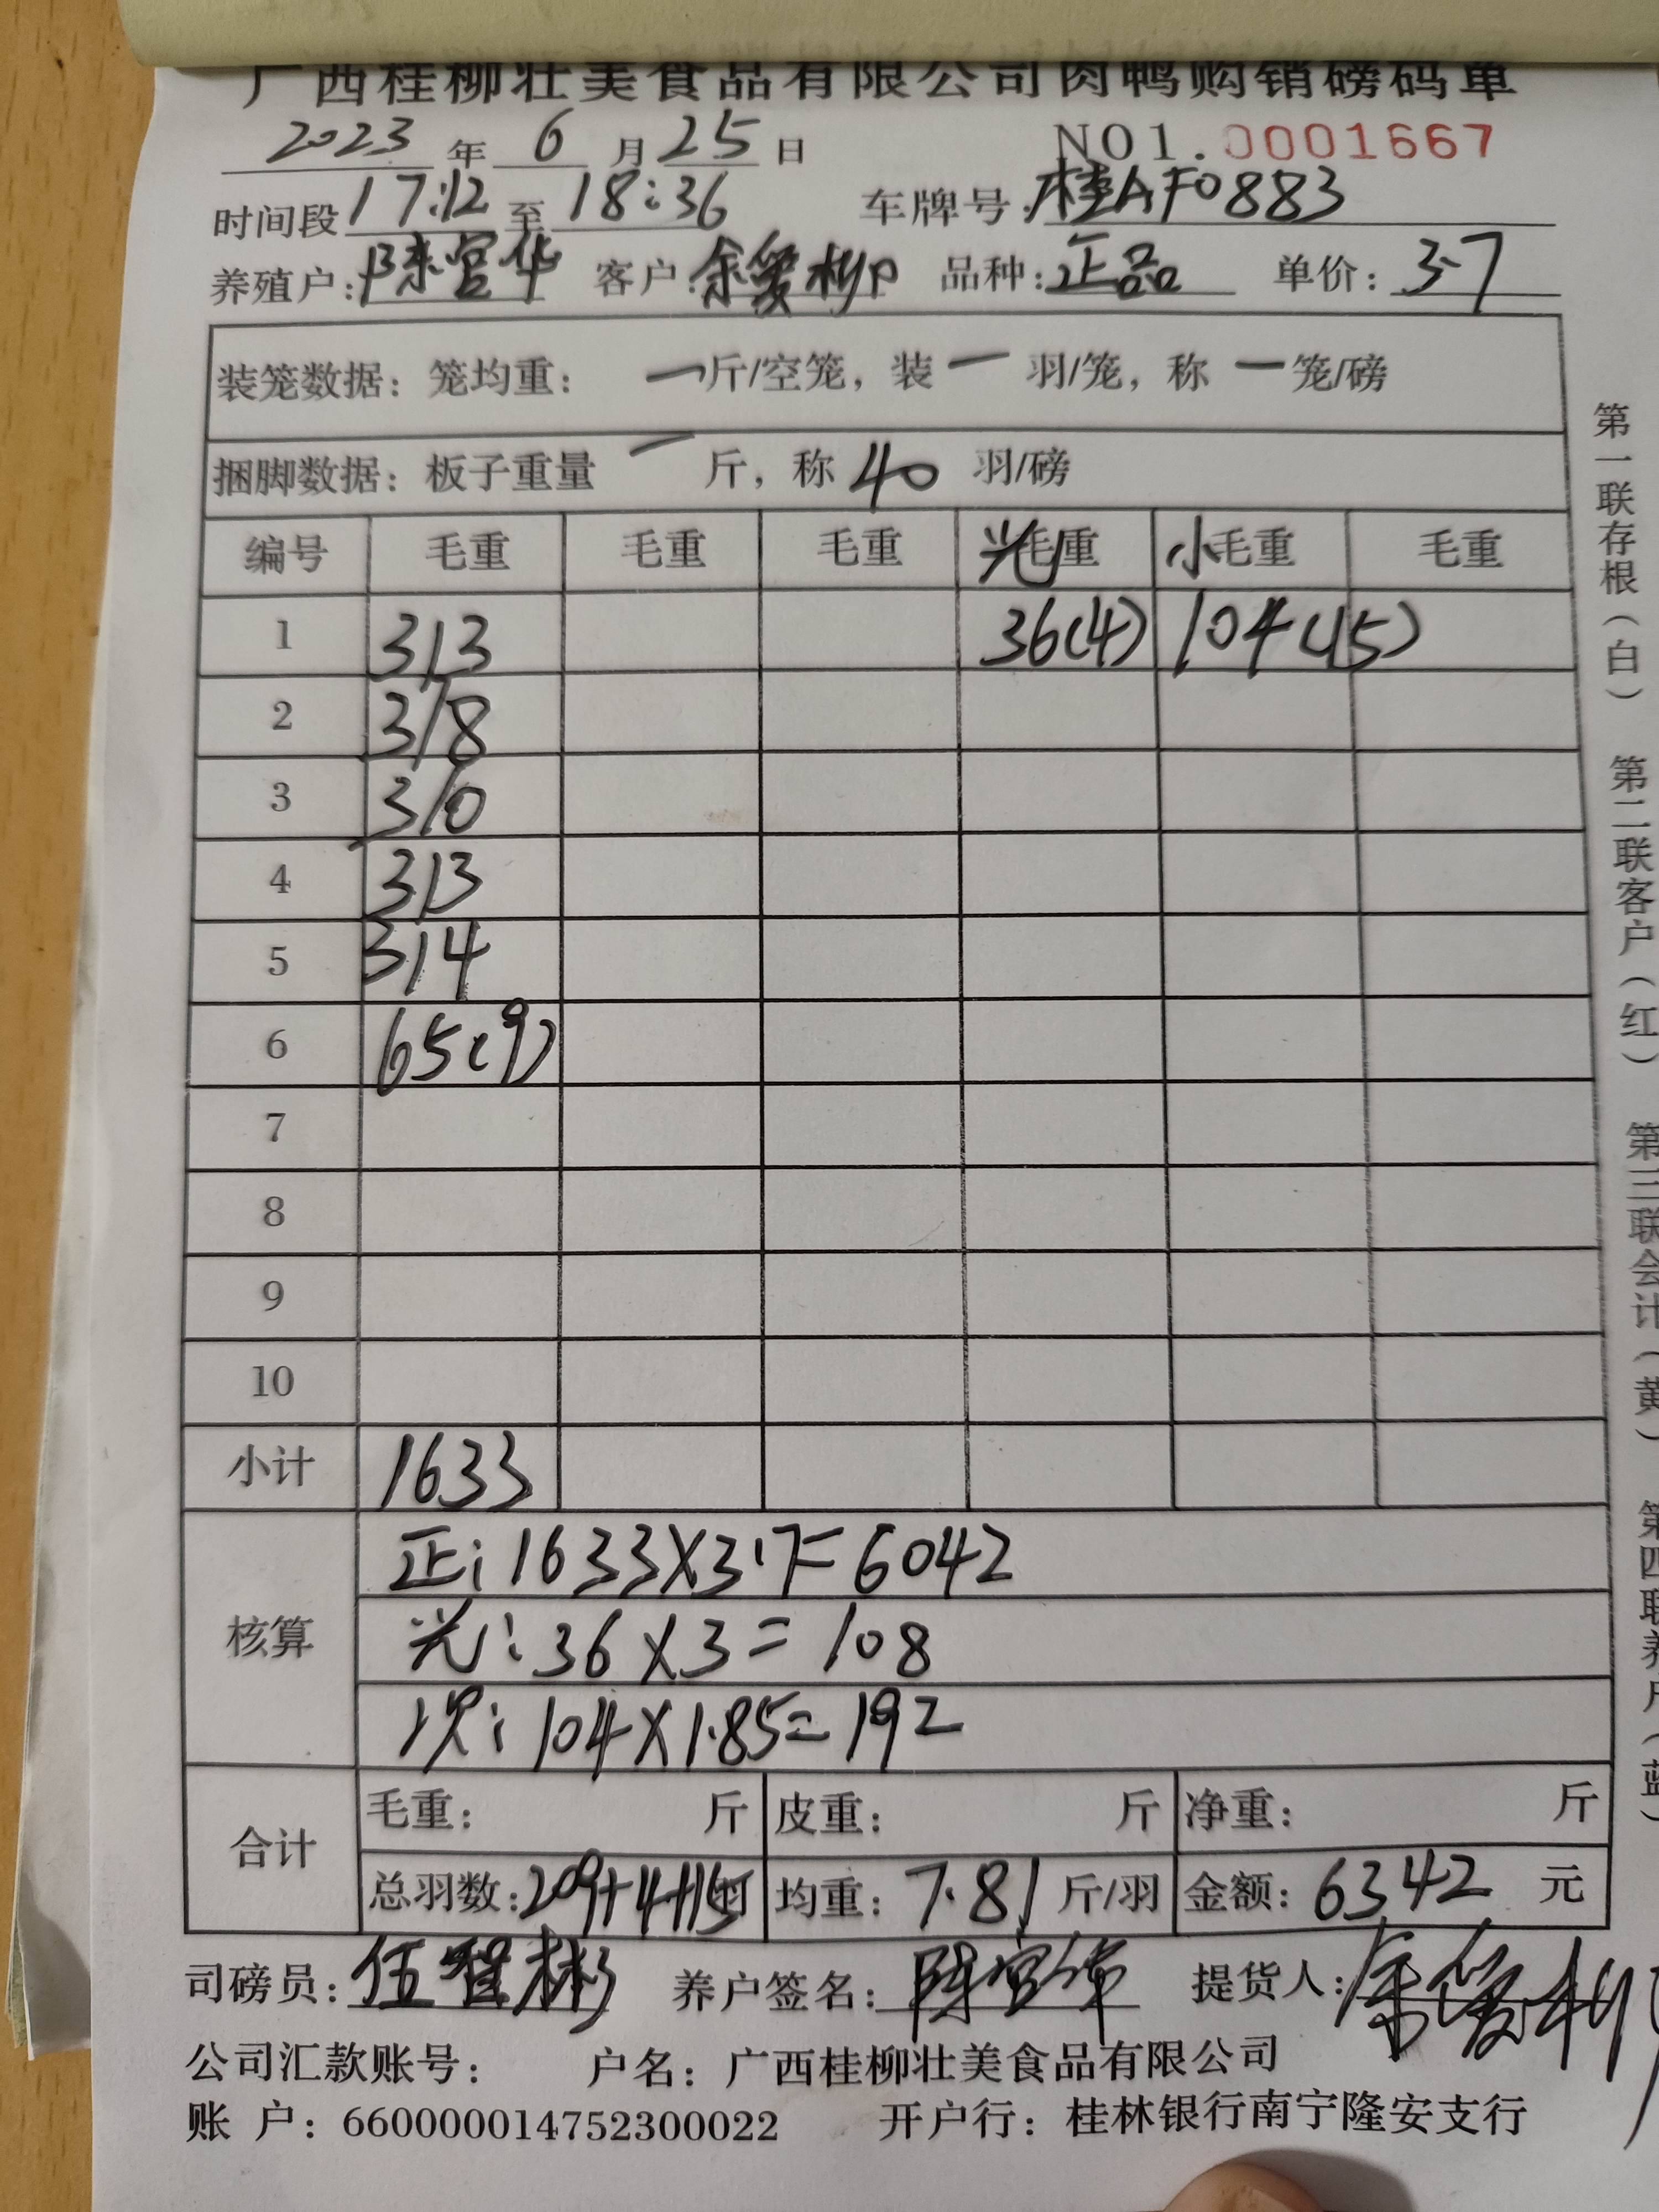 广西桂柳壮美食品有限公司肉鸭购销磅码单
2023 年 6 月 25 日 NO1.0001667
时间段 17:12 至 18:36 车牌号:桂AF0883
养殖户:陈宫华 客户:余爱柳 品种:正品 单价:3.7
装笼数据:笼均重: 一斤/空笼,装 一 羽/笼,称 一 笼/磅
捆脚数据:板子重量 一 斤,称 40 羽/磅
编号 毛重 毛重 毛重 光毛重 小毛重 毛重
1 313 36(4) 104(15)
2 318
3 310
4 313
5 314
6 65(9)
7
8
9
10
小计 1633
核算
正:1633×3.7=6042
光:36×3=108
次:104×1.85=192
合计
毛重: 斤 皮重: 斤 净重: 斤
总羽数:209+4+15羽 均重:7.81 斤/羽 金额:6342 元
司磅员:伍 彬 养户签名:陈宫华 提货人:余爱柳
公司汇款账号: 户名:广西桂柳壮美食品有限公司
账 户:660000014752300022 开户行:桂林银行南宁隆安支行
第一联存根(白) 第二联客户(红) 第三联会计(黄) 第四联养户(蓝)